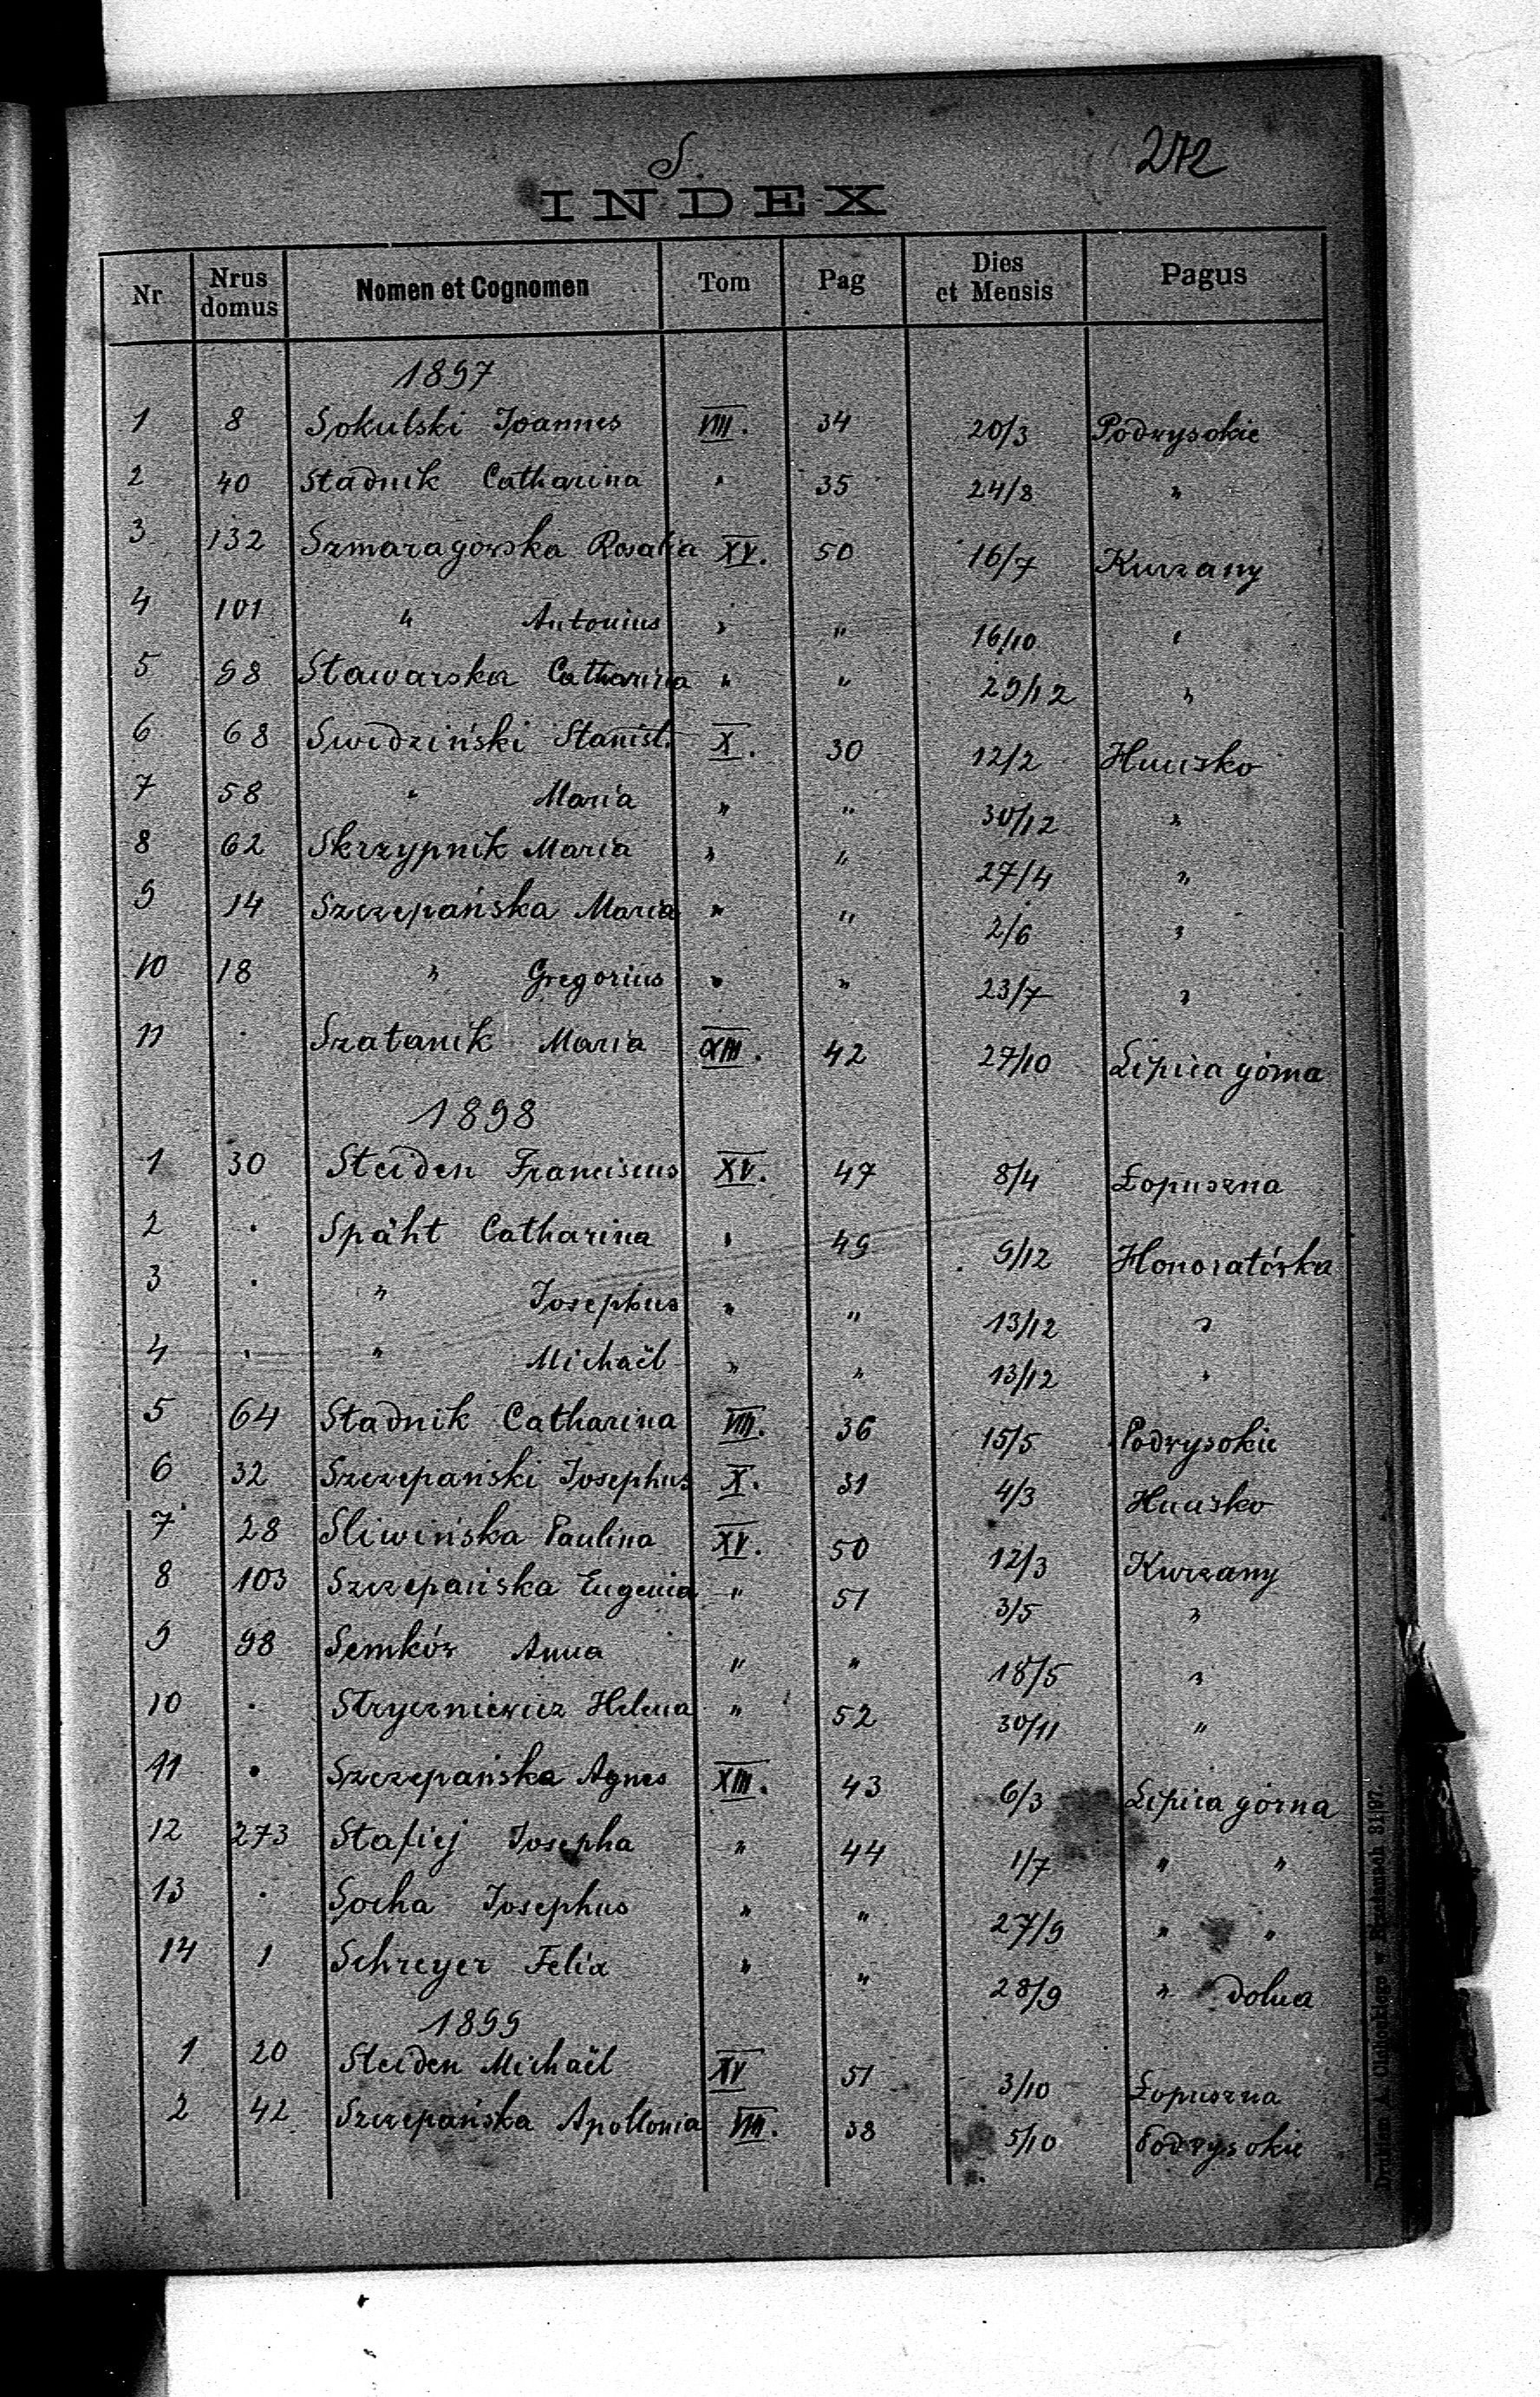 272
S.
INDEX
Nr | Nrus domus | Nomen et Cognomen | Tom | Pag | Dies et Mensis | Pagus
1897
1 | 8 | Sokulski Joannes | VIII. | 34 | 20/3 | Podwysokie
2 | 40 | Stadnik Catharina | " | 35 | 24/8 | "
3 | 132 | Szmaragowska Rosalia | XV. | 50 | 16/7 | Kurzany
4 | 101 | " Antonius | " | " | 16/10 | "
5 | 98 | Stawarska Catharina | " | " | 29/12 | "
6 | 68 | Swidziński Stanisł. | X. | 30 | 12/2 | Hucisko
7 | 58 | " Maria | " | " | 30/12 | "
8 | 62 | Skrzypnik Maria | " | " | 27/4 | "
9 | 14 | Szczepańska Maria | " | " | 2/6 | "
10 | 18 | " Gregorius | " | " | 23/7 | "
11 | . | Szatanik Maria | XIII. | 42 | 27/10 | Lipica górna
1898
1 | 30 | Steiden Franciscus | XV. | 47 | 8/4 | Łopuszna
2 | . | Späht Catharina | " | 49 | 9/12 | Honoratówka
3 | . | " Josephus | " | " | 13/12 | "
4 | . | " Michaël | " | " | 13/12 | "
5 | 64 | Stadnik Catharina | VIII. | 36 | 15/5 | Podwysokie
6 | 32 | Szczepański Josephus | X. | 31 | 4/3 | Hucisko
7 | 28 | Sliwińska Paulina | XV. | 50 | 12/3 | Kurzany
8 | 103 | Szczepańska Eugenia | " | 51 | 3/5 | "
9 | 98 | Semków Anna | " | " | 18/5 | "
10 | . | Stryczniewicz Helena | " | 52 | 30/11 | "
11 | . | Szczepańska Agnes | XIII. | 43 | 6/3 | Lipica górna
12 | 273 | Stafiej Josepha | " | 44 | 1/7 | " "
13 | . | Socha Josephus | " | " | 27/9 | " "
14 | 1 | Schreyer Felix | " | " | 28/9 | " dolna
1899
1 | 20 | Steiden Michaël | XV | 51 | 3/10 | Łopuszna
2 | 42 | Szczepańska Apollonia | VIII. | 38 | 5/10 | Podwysokie